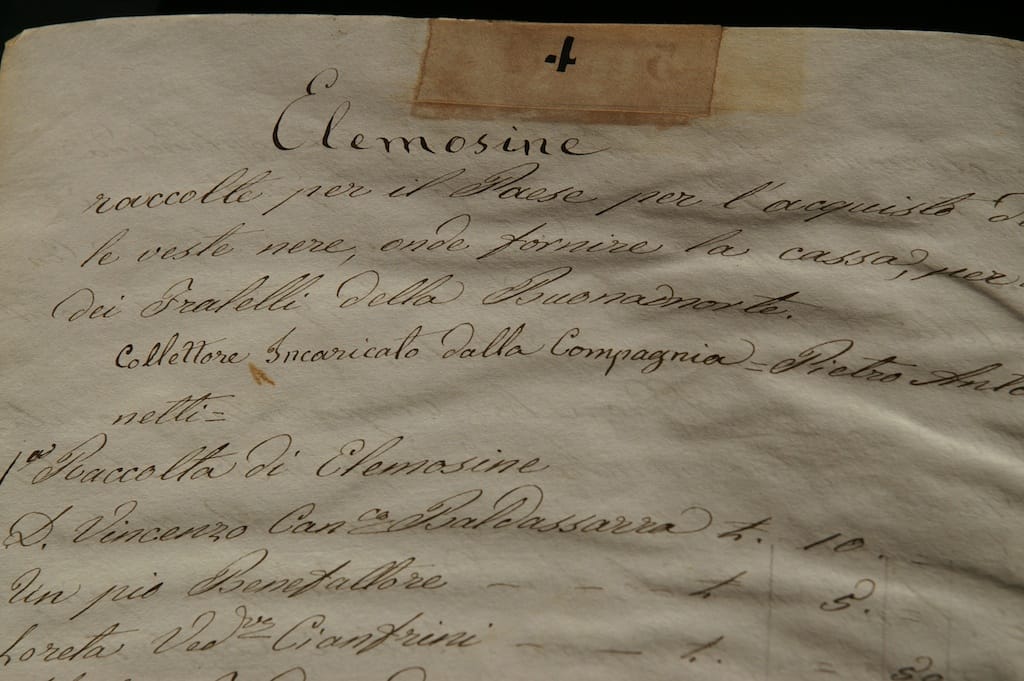 4
Elemosine
raccolte per il Paese per l'acquisto
le veste nere, onde fornire la cassa, per
dei Fratelli della Buonamorte.
Collettore Incaricato dalla Compagnia = Pietro Anto
netti =
1ª Raccolta di Elemosine
D. Vincenzo Can.co Baldassarra £. 10.
Un pio Benefattore - - - £. 5. =
Loreta Ved.va Cianfrini - - £. =